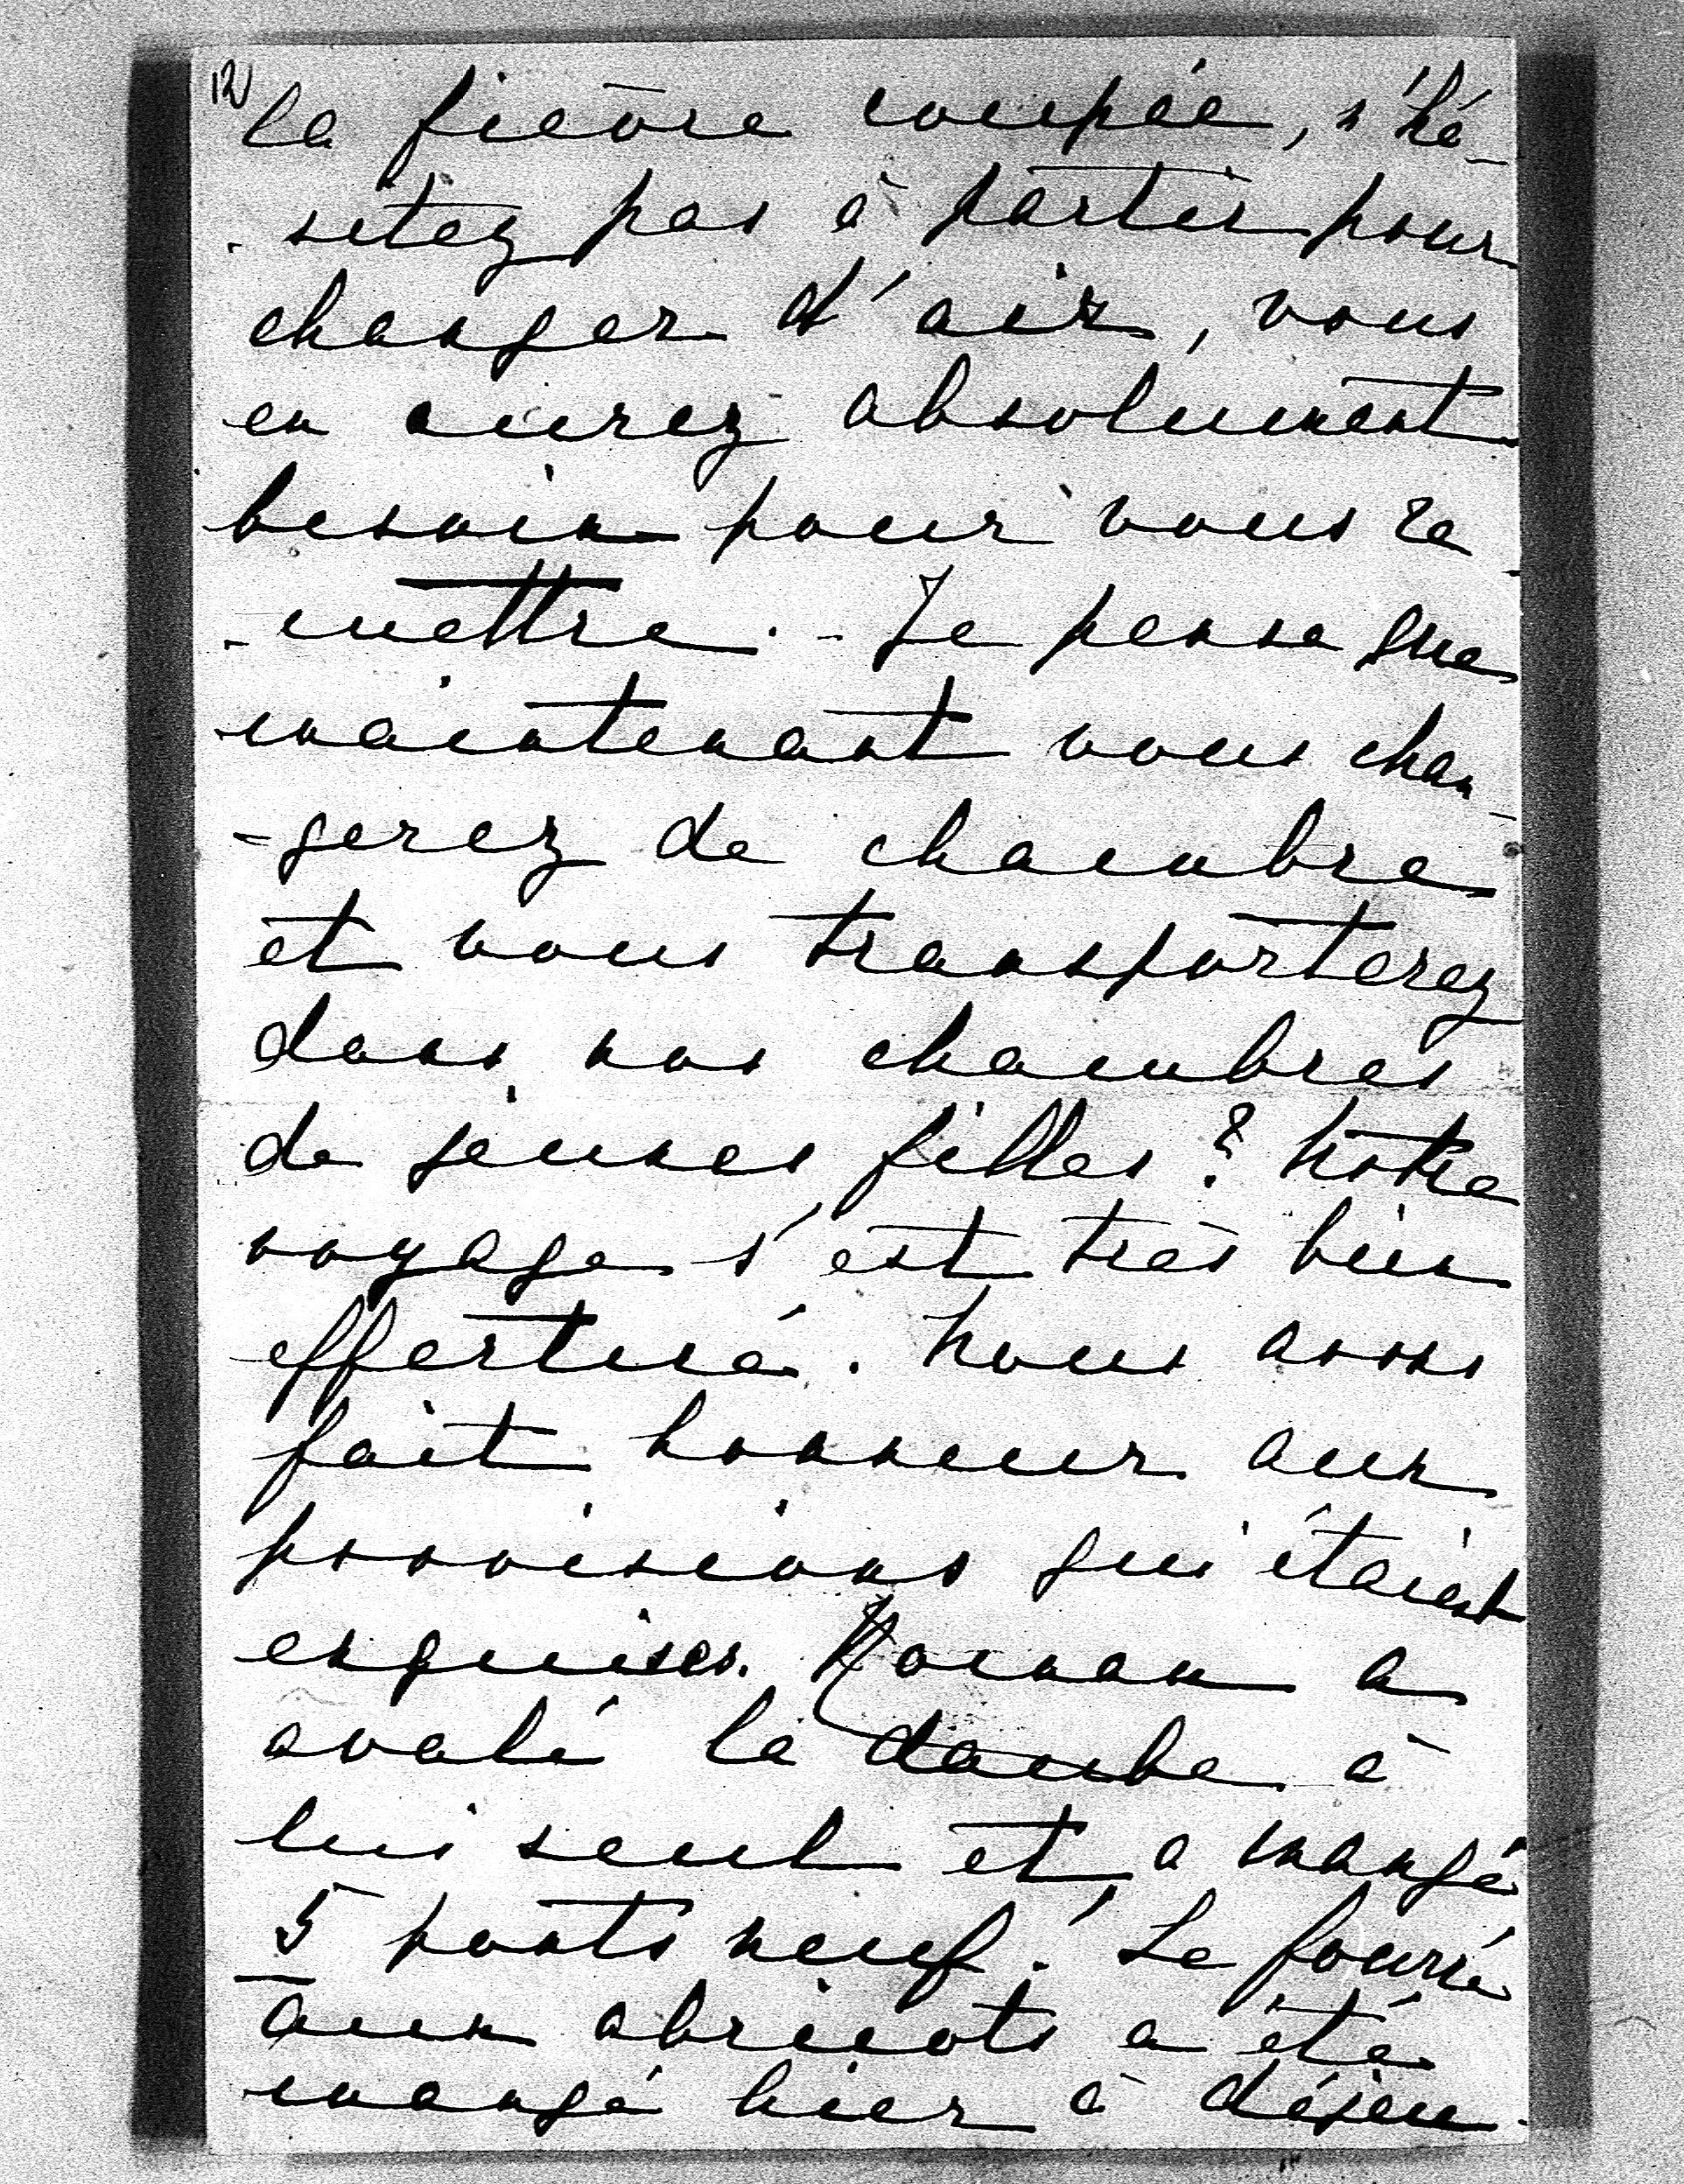 12
la fièvre coupée, n'hé-
-sitez pas à partir pour
changer d'air, vous
en aurez absolument
besoin pour vous re
-mettre. - Je pense que
maintenant vous chan-
-gerez de chambre
et vous transporterez
dans nos chambres
de jeunes filles? Notre
voyage s'est très bien
effectué. Nous avons
fait honneur aux
provisions qui étaient
exquises. a
avalé la daube à
lui seul et a mangé
5 ponts neuf! Le fourré
aux abricots a été
mangé hier à déjeu-